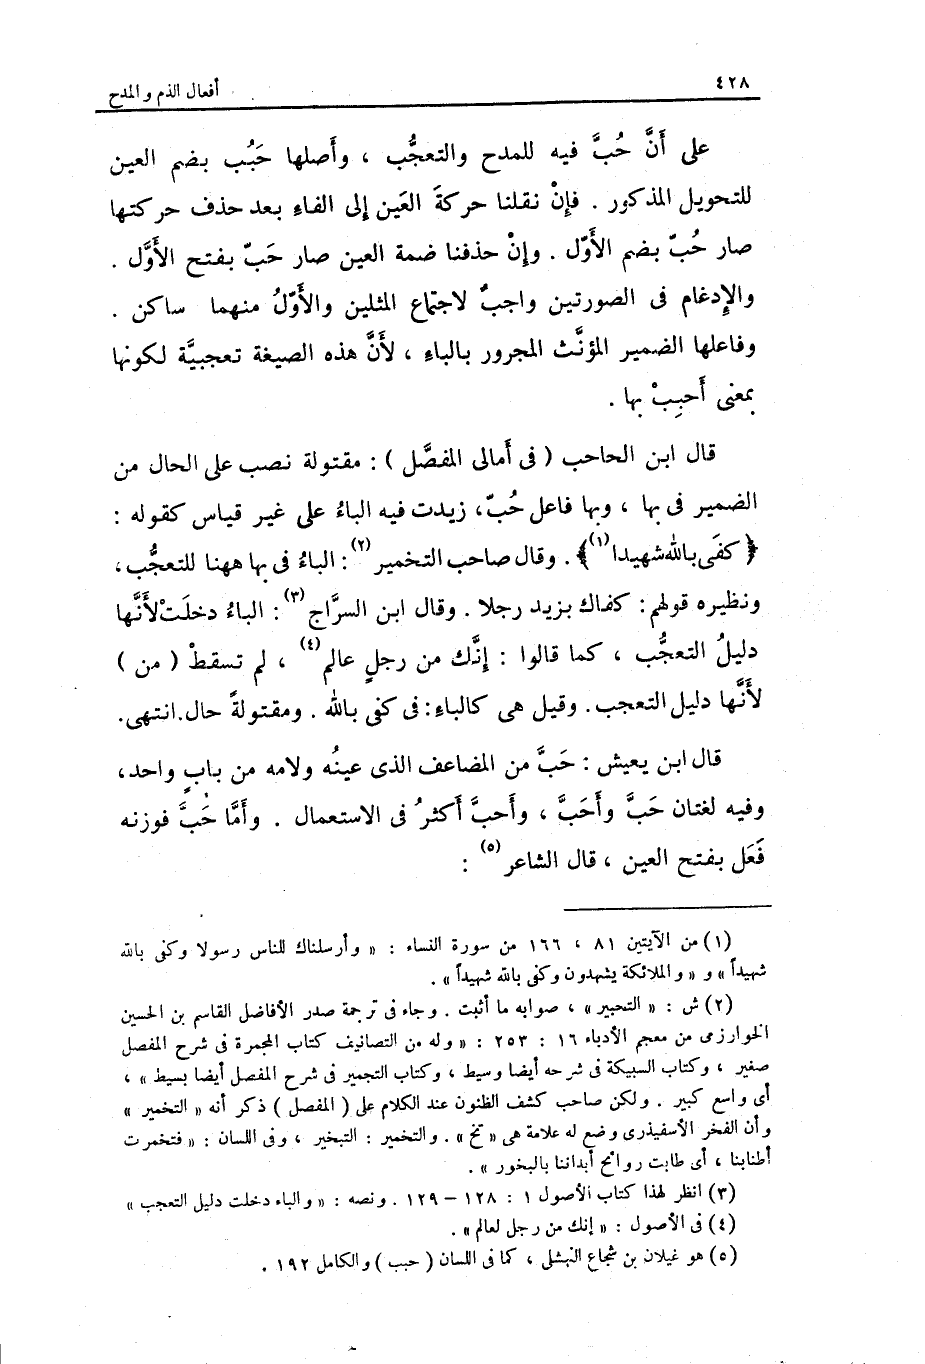 ٤٢٨
أفعال الذم والمدح
على أَنَّ حُبَّ فيه للمدح والتعجُّب ، وأَصلها حَبُب بضم العين
للتحويل المذكور . فإِنْ نقلنا حركةَ العَين إلى الفاءِ بعد حذف حركتها
صار حُبّ بضم الأَوّل . وإِنْ حذفنا ضمة العين صار حَبّ بفتح الأَوَّل .
والإِدغام فى الصورتين واجبٌ لاجتماع المثلين والأَوّلُ منهما ساكن .
وفاعلها الضمير المؤنَّث المجرور بالباءِ ، لأَنَّ هذه الصيغة تعجبيَّة لكونها
بمعنى أَحبِبْ بها .
قال ابن الحاجب ( فى أَمالى المفصَّل ) : مقتولة نصب على الحال من
الضمير فى بها ، وبها فاعل حُبّ، زيدت فيه الباءُ على غير قياس كقوله :
﴿ كفَى بالله شهيدا (١) ﴾ . وقال صاحب التخمير (٢) : الباءُ فى بها ههنا للتعجُّب،
ونظيره قولهم : كفاك بزيد رجلا . وقال ابن السرَّاج (٣) : الباءُ دخلَتْ لأَنَّها
دليلُ التعجُّب ، كما قالوا : إِنَّك من رجلٍ عالم (٤) ، لم تسقطْ ( من )
لأَنَّها دليل التعجب . وقيل هى كالباءِ : فى كفى بالله . ومقتولةً حال . انتهى.
قال ابن يعيش : حَبَّ من المضاعف الذى عينُه ولامه من بابٍ واحد،
وفيه لغتان حَبَّ وأَحَبَّ ، وأَحبَّ أَكثرُ فى الاستعمال . وأَمَّا حَبَّ فوزنه
فَعَل بفتح العين ، قال الشاعر (٥) :
(١) من الآيتين ٨١ ، ١٦٦ من سورة النساء : « وأرسلناك للناس رسولا وكفى بالله
شهيداً » و « والملائكة يشهدون وكفى بالله شهيداً » .
(٢) ش : « التحبير » ، صوابه ما أثبت . وجاء فى ترجمة صدر الأفاضل القاسم بن الحسين
الخوارزمى من معجم الأدباء ١٦ : ٢٥٣ : « وله من التصانيف كتاب المجمرة فى شرح المفصل
صغير ، وكتاب السبيكة فى شرحه أيضا وسيط ، وكتاب التجمير فى شرح المفصل أيضا بسيط » ،
أى واسع كبير . ولكن صاحب كشف الظنون عند الكلام على ( المفصل ) ذكر أنه « التخمير »
وأن الفخر الأسفيذرى وضع له علامة هى « تخ » . والتخمير : التبخير ، وفى اللسان : « فتخمرت
أطنابنا ، أى طابت روائح أبداننا بالبخور » .
(٣) انظر لهذا كتاب الأصول ١ : ١٢٨ – ١٢٩ . ونصه : « والباء دخلت دليل التعجب »
(٤) فى الأصول : « إنك من رجل لعالم » .
(٥) هو غيلان بن شجاع النهشلى ، كما فى اللسان ( حبب ) والكامل ١٩٢ .